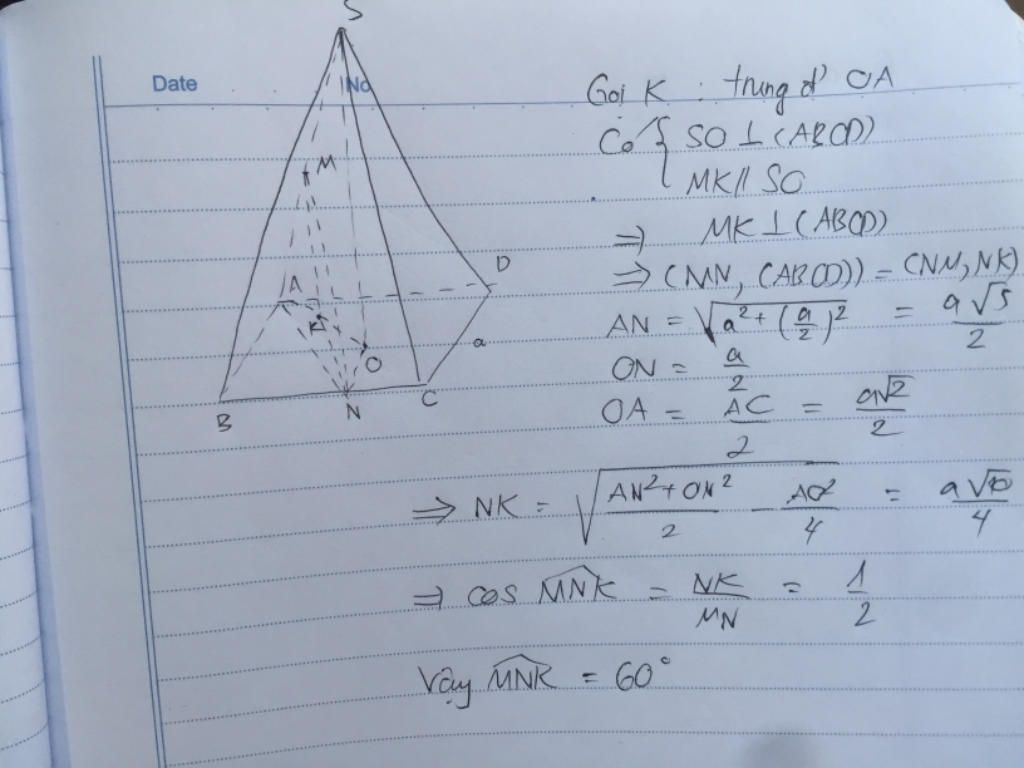 S
Date
No
M
A
D
K
O
a
B
N
C
Gọi K : trung đ' OA
Có { SO ⊥ (ABCD)
MK // SO
=> MK ⊥ (ABCD)
=> (MN, (ABCD)) = (NM, NK)
AN = √(a² + (a/2)²) = a√5/2
ON = a/2
OA = AC/2 = a√2/2
=> NK = √((AN² + ON²)/2 - AO²/4) = a√10/4
=> cos MNK = NK/MN = 1/2
Vậy MNK = 60°